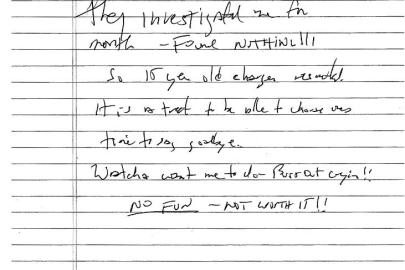 they investigated me for
month – Found NOTHING!!!
So 15 year old charges resulted.
It is a treat to be able to choose ones
time to say goodbye.
Watcha want me to do – Burst out cryin'!!
NO FUN – NOT WORTH IT!!